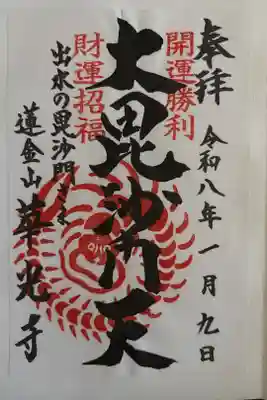 奉拝
令和八年一月九日
開運勝利
大毘沙門天
財運招福
出水の毘沙門さま
蓮金山
華光寺